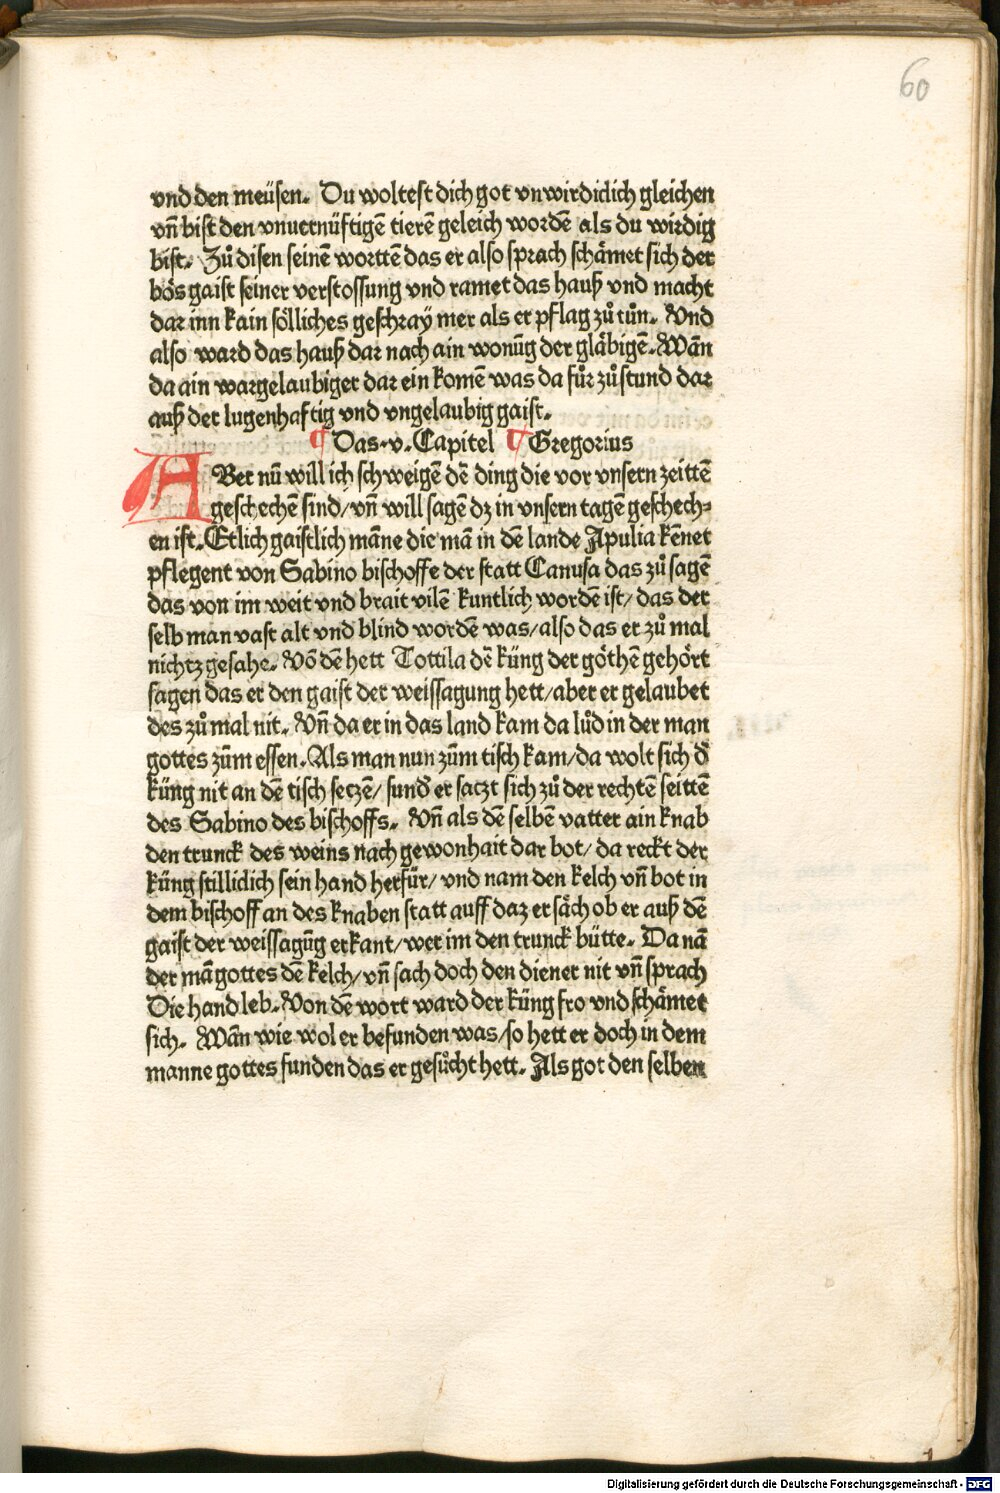 60
vnd den meüsen. Du woltest dich got vnwirdiclich gleichen
vn̄ bist den vnuernüftigē tierē geleich wordē als du wirdig
bist. Zů disen seinē worttē das er also sprach schämet sich der
bös gaist seiner verstossung vnd ramet das hauß vnd macht
dar inn kain sölliches geschray mer als er pflag zů tůn. Vnd
also ward das hauß dar nach ain wonūg der gläbigē. Wān
da ain wargelaubiger dar ein komē was da fůr zůstund dar
auß der lugenhaftig vnd vngelaubig gaist.
¶ Das .v. Capitel ¶ Gregorius
ABer nū will ich schweigē dē ding die vor vnsern zeittē
geschechē sind/ vn̄ will sagē dz in vnsern tagē geschech⸗
en ist. Etlich gaistlich māne die mā in dē lande Apulia kēnet
pflegent von Sabino bischoffe der statt Canusa das zů sagē
das von im weit vnd brait vilē kuntlich wordē ist/ das der
selb man vast alt vnd blind wordē was/ also das er zů mal
nichtz gesahe. Vō dē hett Tottila dē küng der göthē gehört
sagen das er den gaist der weissagung hett/ aber er gelaubet
des zů mal nit. Vn̄ da er in das land kam da lůd in der man
gottes zům essen. Als man nun zům tisch kam/ da wolt sich d̄
küng nit an dē tisch seczē/ sund̄ er saczt sich zů der rechtē seittē
des Sabino des bischoffs. Vn̄ als dē selbē vatter ain knab
den trunck des weins nach gewonhait dar bot/ da reckt der
küng stillidich sein hand herfür/ vnd nam den kelch vn̄ bot in
dem bischoff an des knaben statt auff daz er säch ob er auß dē
gaist der weissagūg erkant/ wer im den trunck bütte. Da nā
der mā gottes dē kelch/ vn̄ sach doch den diener nit vn̄ sprach
Die hand leb. Von dē wort ward der küng fro vnd schämet
sich. Wān wie wol er befunden was/ so hett er doch in dem
manne gottes funden das er gesůcht hett. Als got den selben
Digitalisierung gefördert durch die Deutsche Forschungsgemeinschaft - DFG